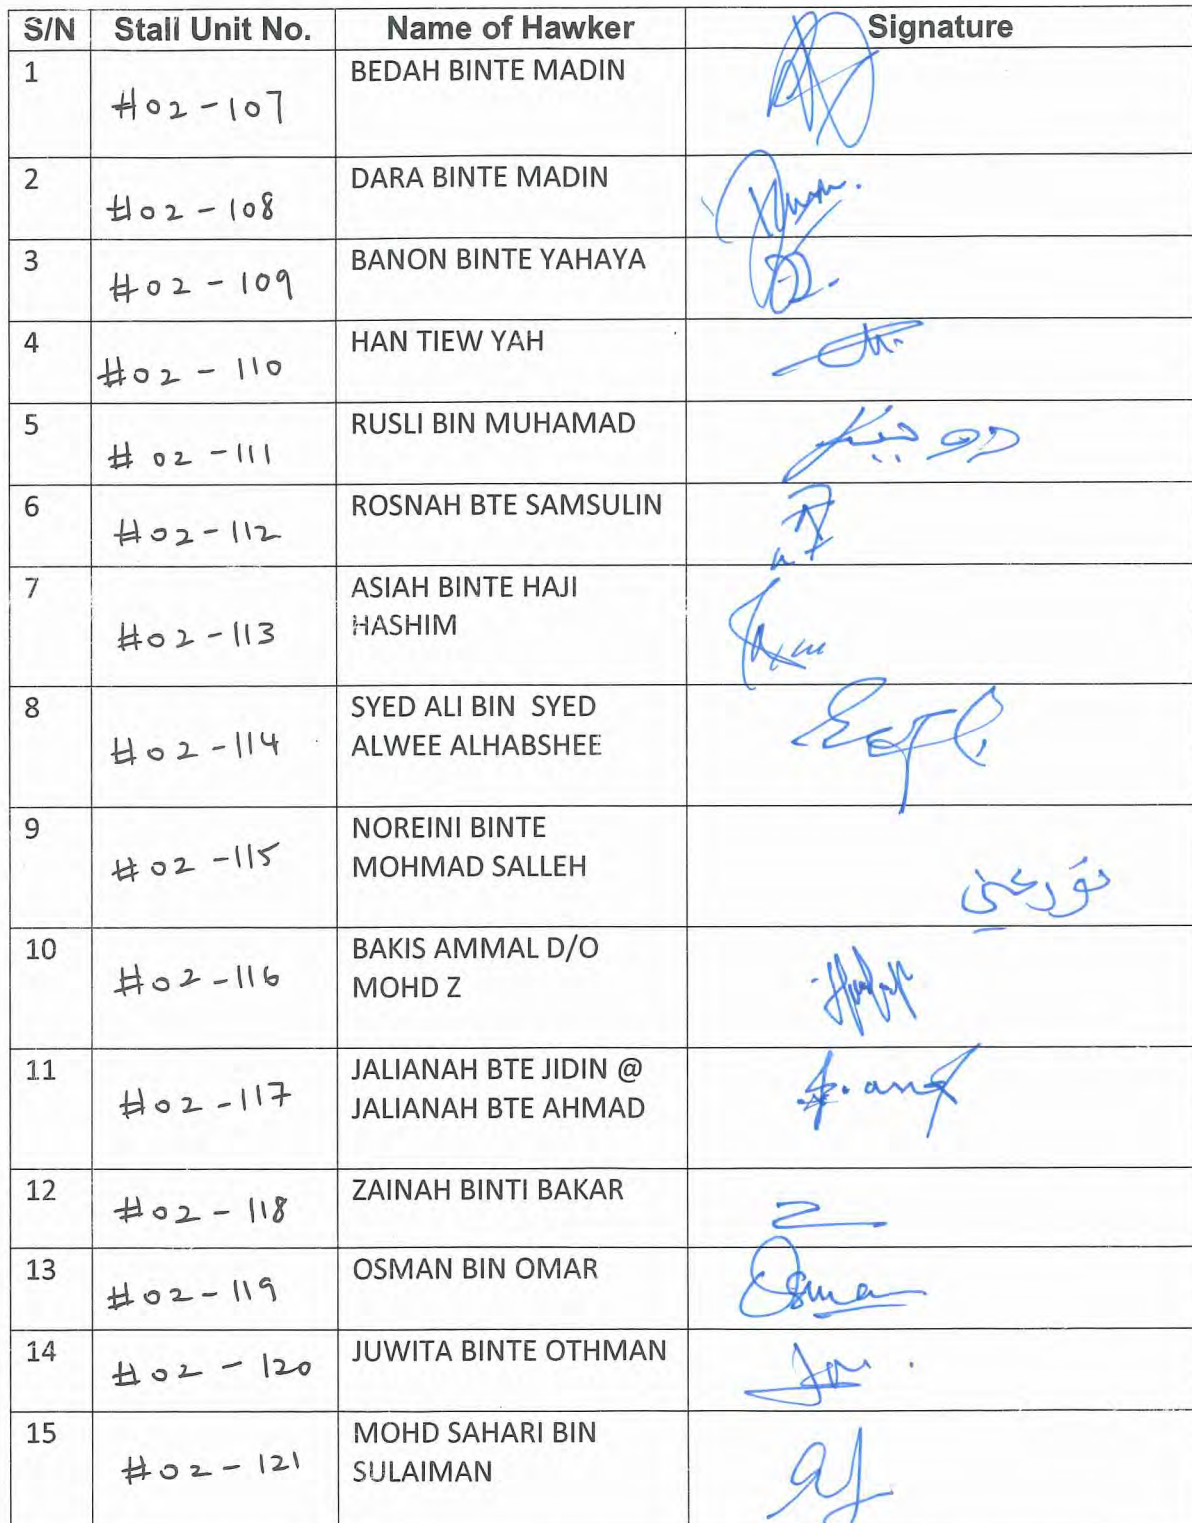 S/N Stall Unit No. Name of Hawker Signature
1 #02-107 BEDAH BINTE MADIN
2 #02-108 DARA BINTE MADIN
3 #02-109 BANON BINTE YAHAYA
4 #02-110 HAN TIEW YAH
5 #02-111 RUSLI BIN MUHAMAD
6 #02-112 ROSNAH BTE SAMSULIN
7 #02-113 ASIAH BINTE HAJI
HASHIM
8 #02-114 SYED ALI BIN SYED
ALWEE ALHABSHEE
9 #02-115 NOREINI BINTE
MOHMAD SALLEH
10 #02-116 BAKIS AMMAL D/O
MOHD Z
11 #02-117 JALIANAH BTE JIDIN @
JALIANAH BTE AHMAD
12 #02-118 ZAINAH BINTI BAKAR
13 #02-119 OSMAN BIN OMAR Osman
14 #02-120 JUWITA BINTE OTHMAN
15 #02-121 MOHD SAHARI BIN
SULAIMAN